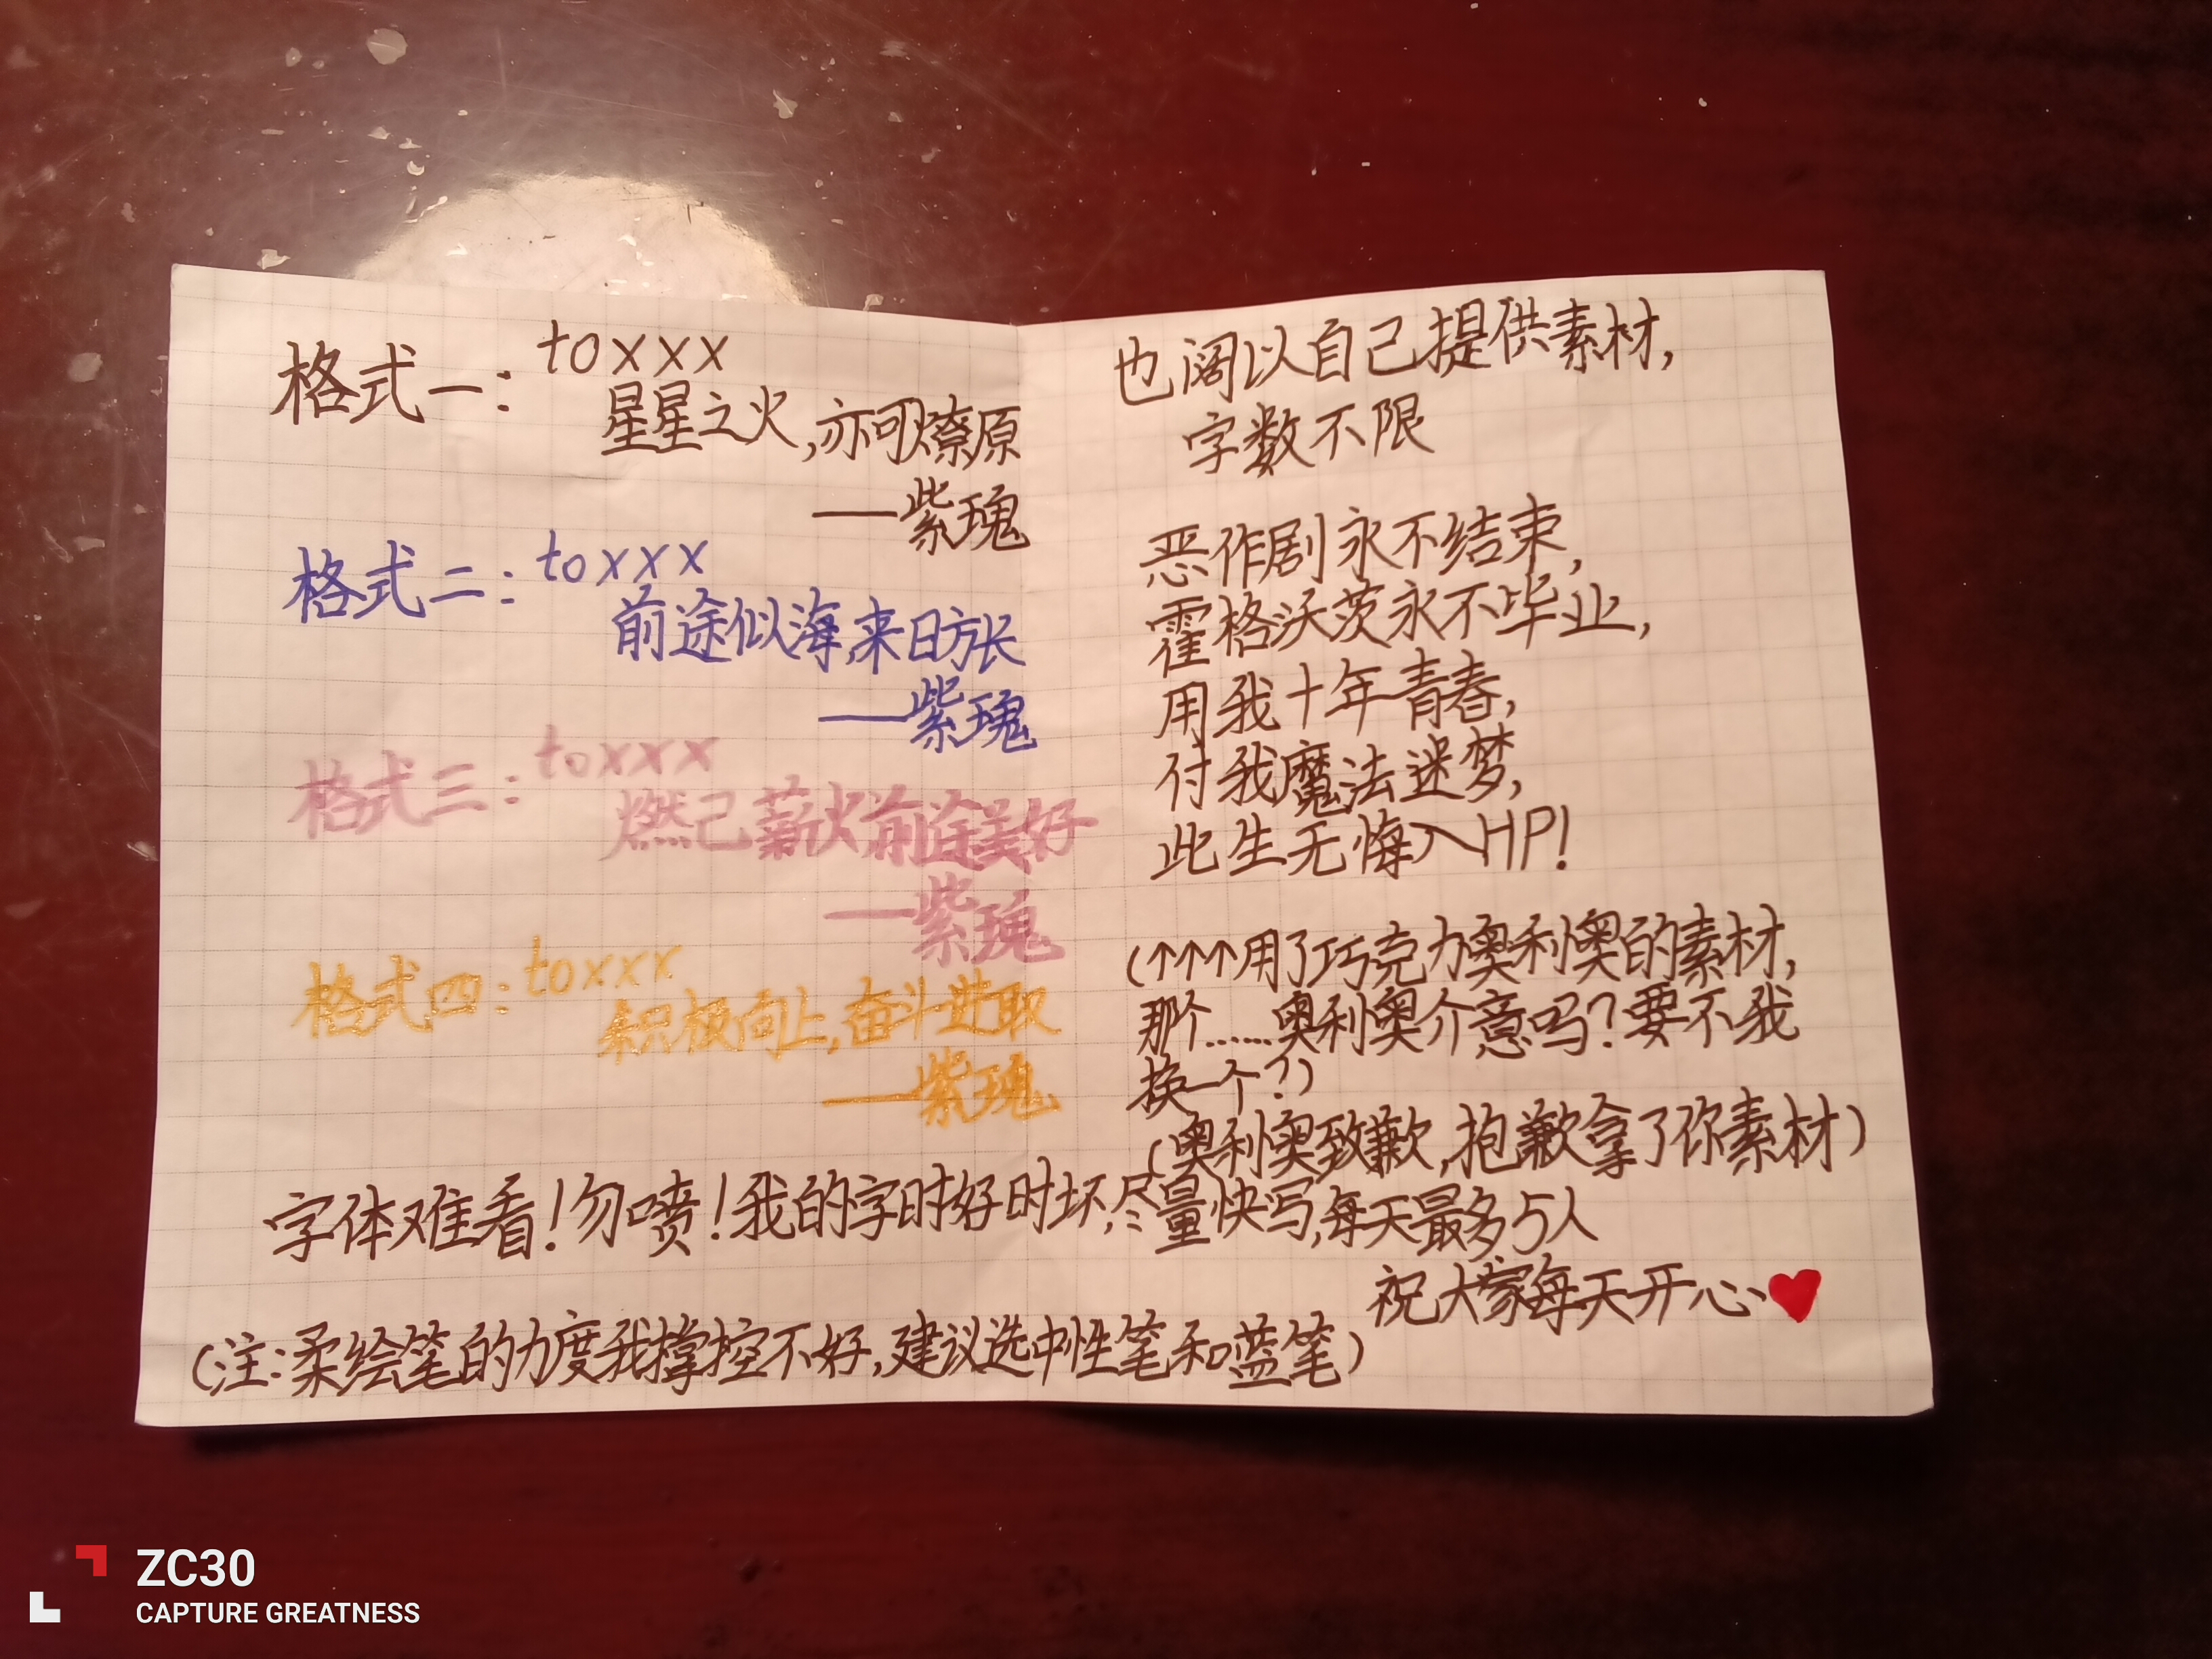 格式一:toxxx
星星之火,亦可燎原
——紫瑰
格式二:toxxx
前途似海,来日方长
——紫瑰
格式三:toxxx
燃己薪火前途美好
——紫瑰
格式四:toxxx
积极向上,奋斗进取
——紫瑰
也阔以自己提供素材,
字数不限
恶作剧永不结束,
霍格沃茨永不毕业,
用我十年青春,
付我魔法迷梦,
此生无悔入HP!
(↑↑↑用了巧克力奥利奥的素材,
那个……奥利奥介意吗?要不我
换一个?)
(奥利奥致歉,抱歉拿了你素材)
字体难看!勿喷!我的字时好时坏,尽量快写,每天最多5人
祝大家每天开心❤
(注:柔绘笔的力度我撑控不好,建议选中性笔和蓝笔)
ZC30
CAPTURE GREATNESS